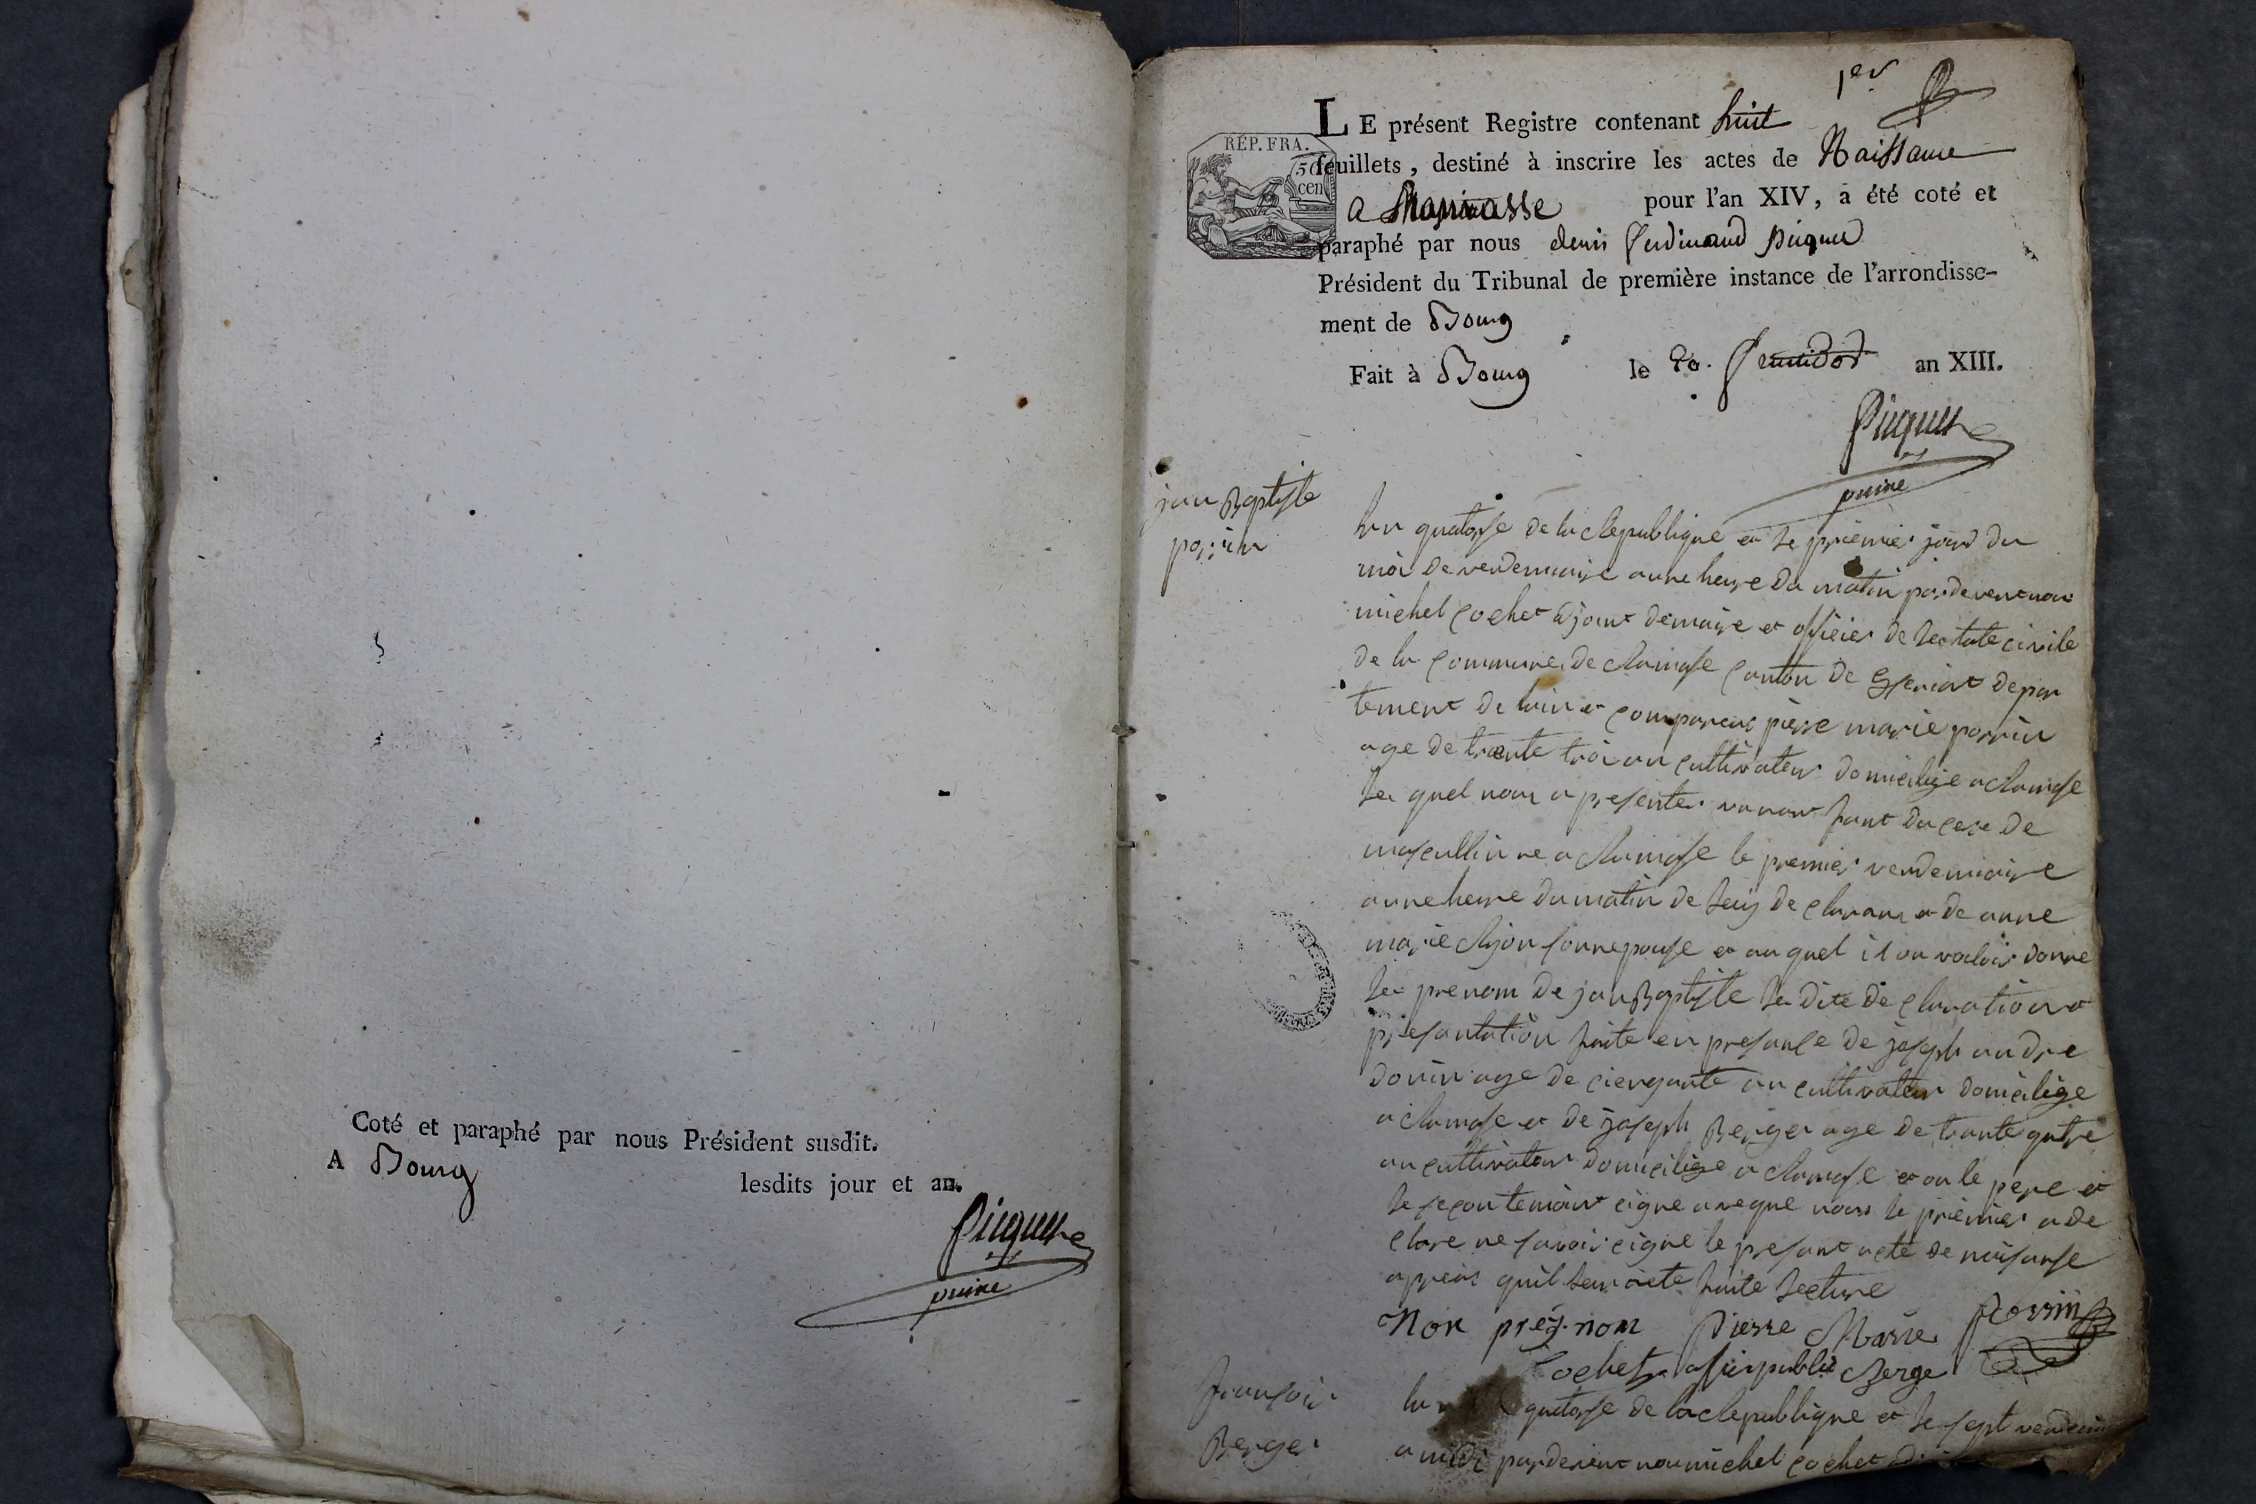 Coté et paraphé par nous Président susdit.
A Bourg lesdits jour et an.
Picquet
puiné
1er
RÉP. FRA.
50
cen
LE présent Registre contenant huit
feuillets, destiné à inscrire les actes de Naissance
a pour l'an XIV, a été coté et
paraphé par nous denis ferdinand picquet
Président du Tribunal de première instance de l'arrondisse-
ment de Bourg
Fait à Bourg le 20. fructidor an XIII.
Picquet
puiné
jan Baptiste
porrin
lan quatorse de la Republique et le priemier jour du
moi de vendemiaire a une heure du matin pardevent nou
michel Cochet ajoint de maire et officier de leetate civile
de la Commune de canton de depar
tement de lain et compareus pierre marie porrin
age de trante troi an cultivateur domicilige a
le quel nous a presenter un anfant du cexe
masculin ne a le premier vendemiaire
a une heure du matin de luij declarant et de anne
marie son nepouse et au quel il on vouloir donne
le prenom de jan Baptiste le dite declaration et
presantation faite en presanse de joseph andre
age de cienquante an cultivateur domicilige
a et de joseph Berger age de trante quatre
an cultivateur domicilige a et on le pere et
le secon temoint cigne aveque nous le priemier a de
clare ne savoir cigne le presant acte de naisanse
appreis quil leur aiete faite lecture
Non pierre Marie porrin
Cochet Berge
francoi
Berger
lan quatorse de la Republique et le sept
a midi pardevent nou michel Cochet